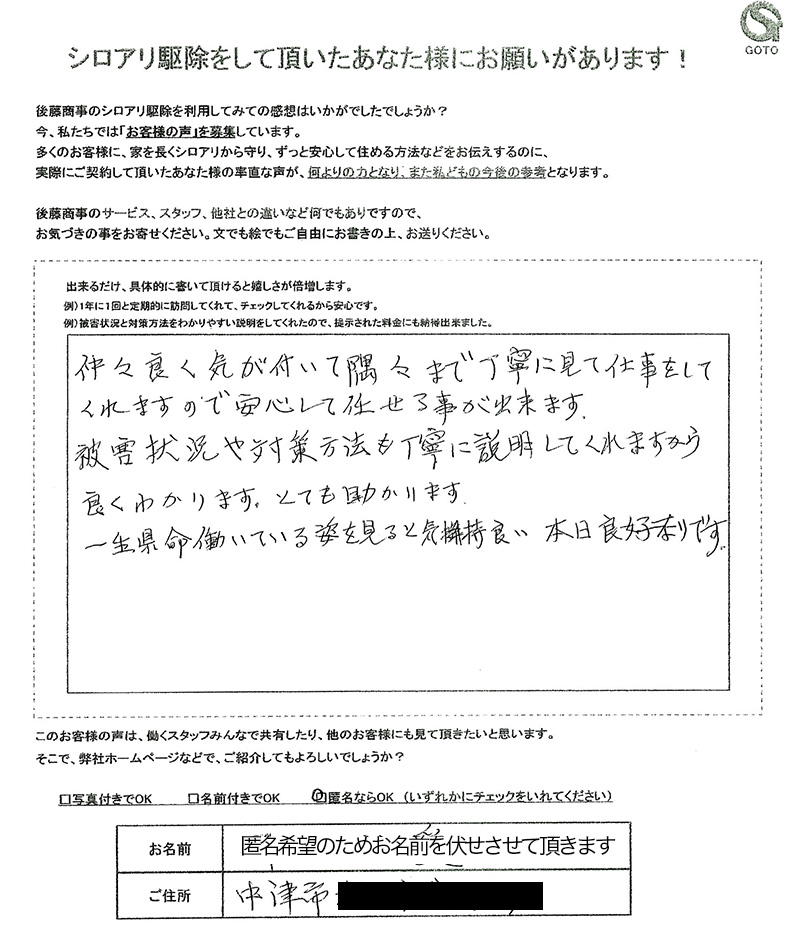 GOTO
シロアリ駆除をして頂いたあなた様にお願いがあります！
後藤商事のシロアリ駆除を利用してみての感想はいかがでしたでしょうか？
今、私たちでは「お客様の声」を募集しています。
多くのお客様に、家を長くシロアリから守り、ずっと安心して住める方法などをお伝えするのに、
実際にご契約して頂いたあなた様の率直な声が、何よりの力となり、また私どもの今後の参考となります。
後藤商事のサービス、スタッフ、他社との違いなど何でもありですので、
お気づきの事をお寄せください。文でも絵でもご自由にお書きの上、お送りください。
出来るだけ、具体的に書いて頂けると嬉しさが倍増します。
例）1年に1回と定期的に訪問してくれて、チェックしてくれるから安心です。
例）被害状況と対策方法をわかりやすい説明をしてくれたので、提示された料金にも納得出来ました。
仲々良く気が付いて隅々まで丁寧に見て仕事をして
くれますので安心して任せる事が出来ます.
被害状況や対策方法も丁寧に説明してくれますから
良くわかります。とても助かります.
一生県命働いている姿を見ると気持良い 本日良好です。
このお客様の声は、働くスタッフみんなで共有したり、他のお客様にも見て頂きたいと思います。
そこで、弊社ホームページなどで、ご紹介してもよろしいでしょうか？
□写真付きでOK □名前付きでOK □匿名ならOK （いずれかにチェックをいれてください）
お名前 匿名希望のためお名前を伏せさせて頂きます
ご住所 中津市